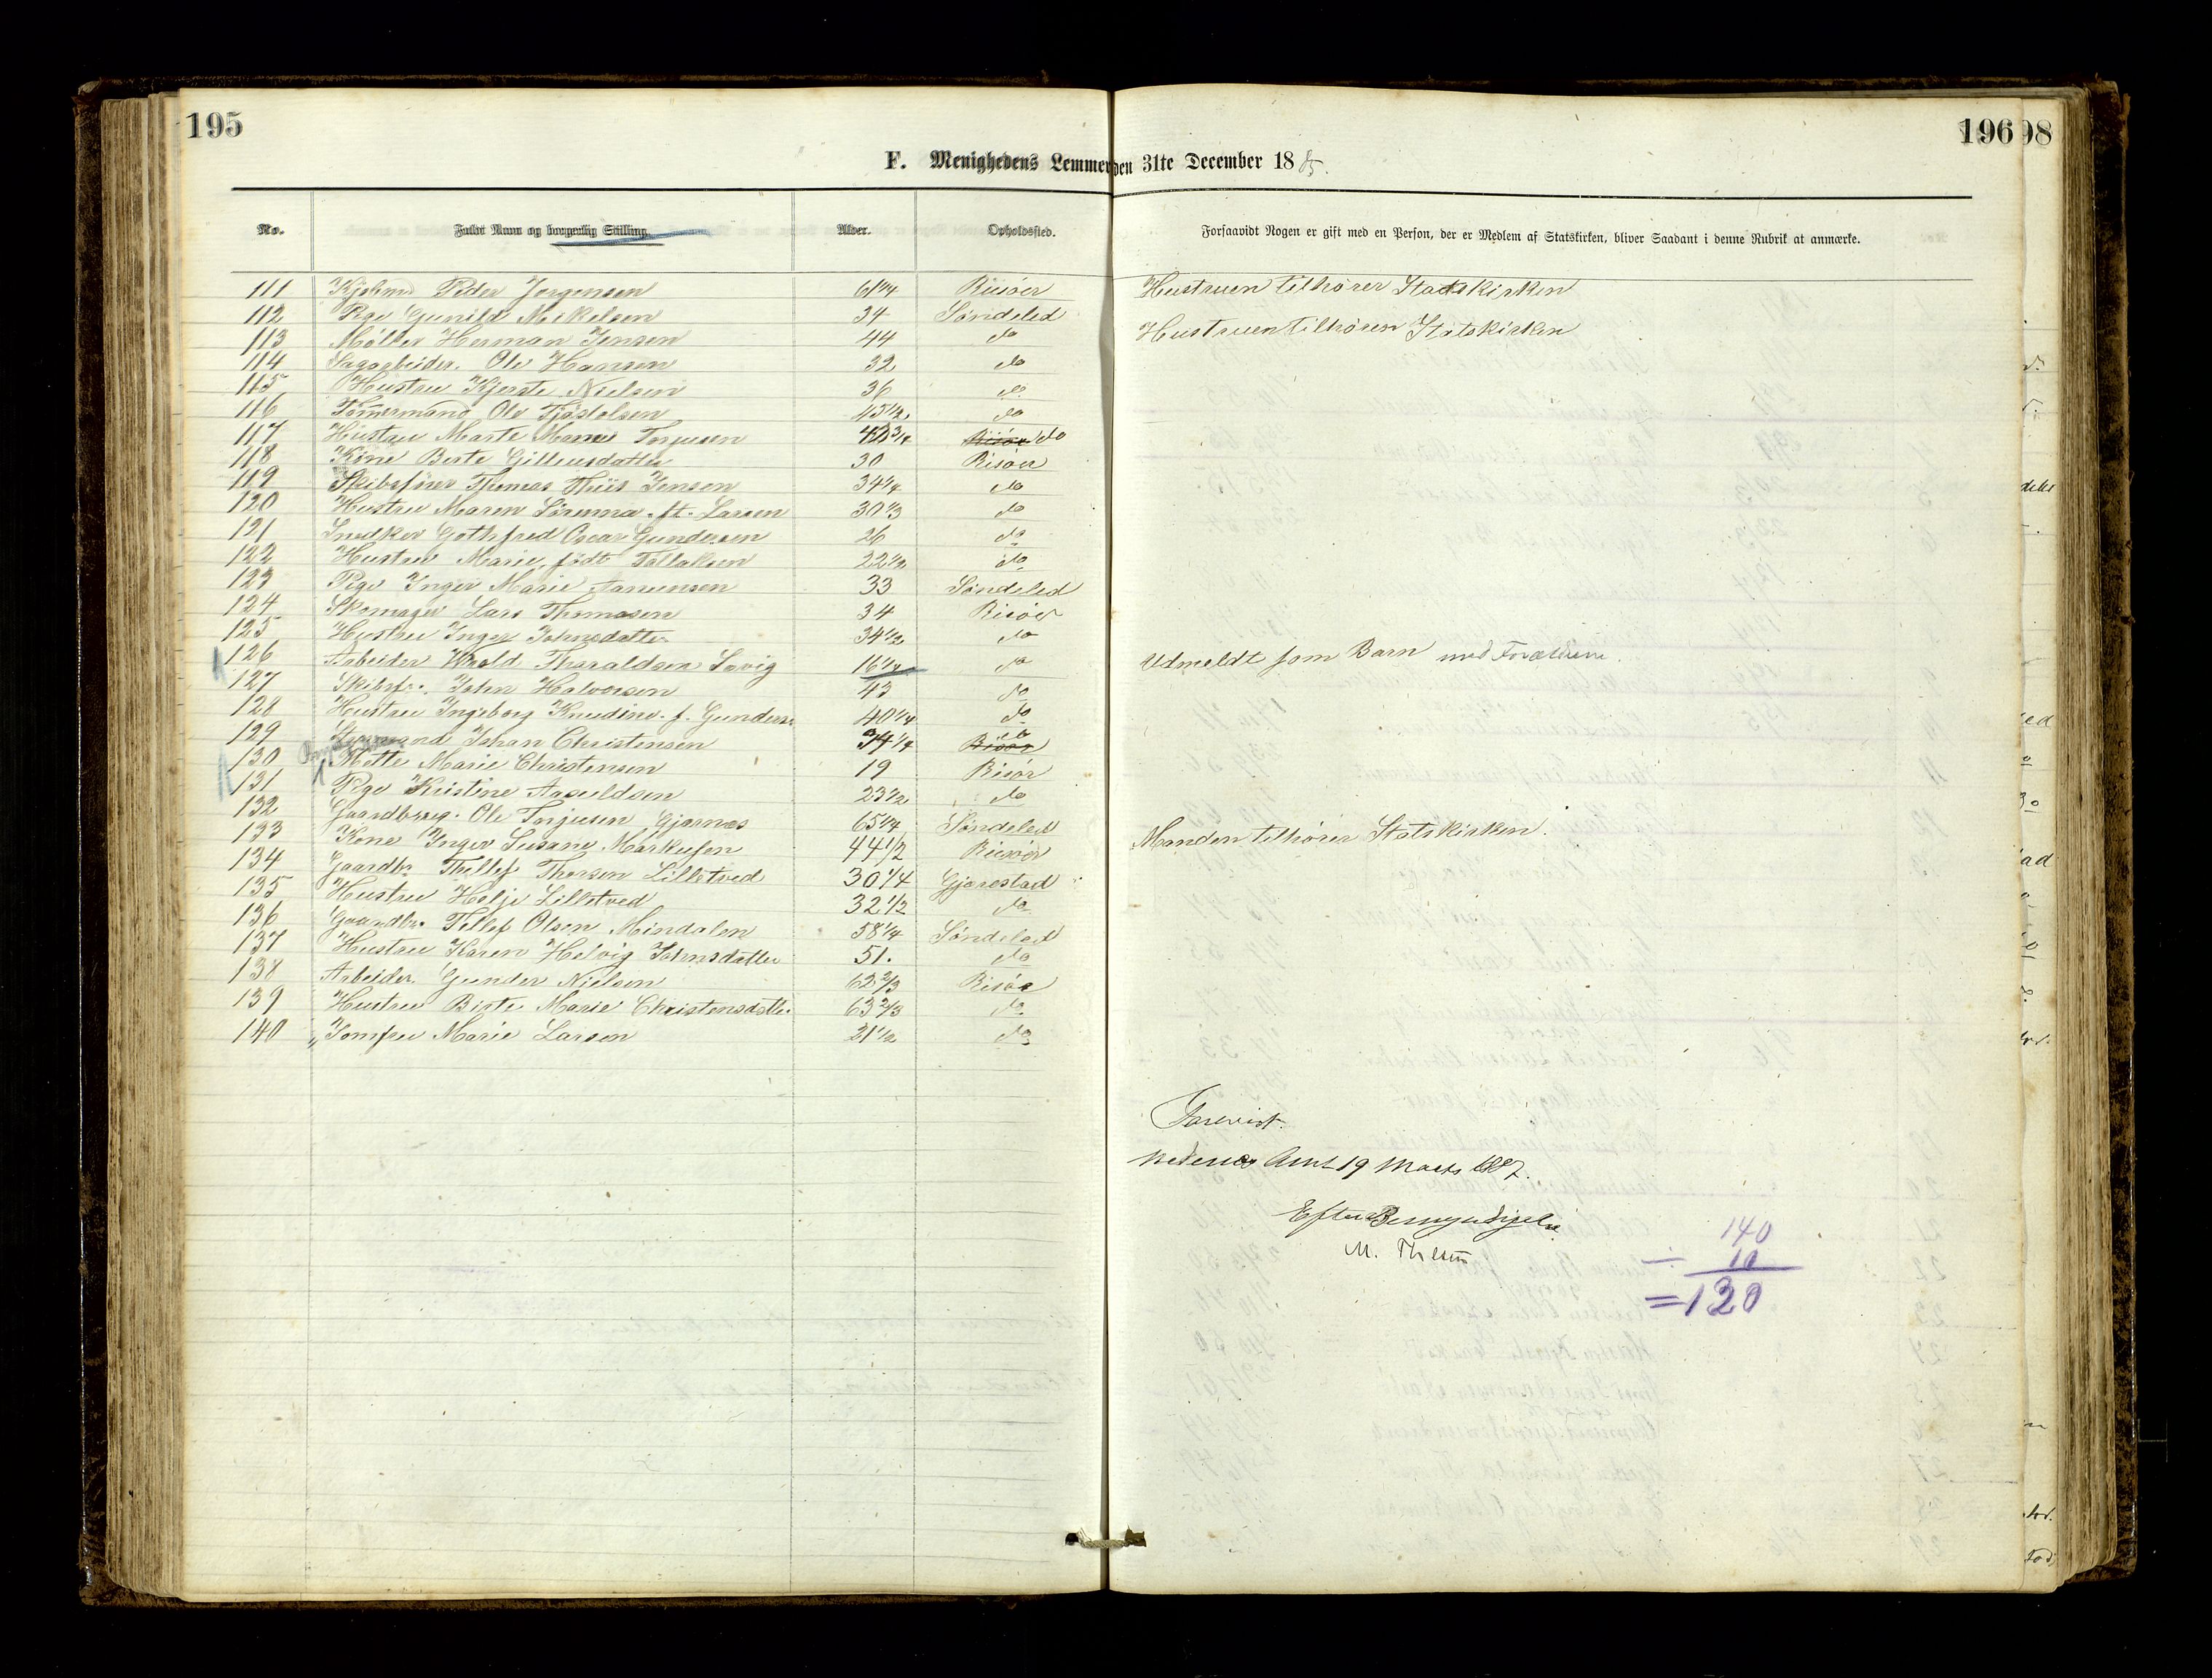 195
196
98
F. Menighedens Lemmer den 31te December 1885.
No. Fuldt Navn og borgerlig Stilling. Alder. Opholdssted. Forsaavidt Nogen er gift med en Person, der er Medlem af Statskirken, bliver Saadant i denne Rubrik at anmærke.
111 Peder Jorgensen 61 3/4 Risöer Hustruen tilhører Stadskirken
112 Pige Gunild Mikelsen 34 Söndeled
113 Möller Herman Jensen 44 do Hustruen tilhörer Statskirken
114 Sagarbeider. Ole Hansen 32 do
115 Hustru Kjerste Nielsen 36 do
116 Tömermand Ole Tjöstolsen 45 1/2 do
117 Hustru Marte Marie Torjusen 3/4 Risör do
118 Kone Berte Gilleusdatter 30 Risöer
119 Skibsfører Thomas Thiis Jensen 34 1/4 do
120 Hustru Maren Sirenna. ft. Larsen 30 1/3 do
121 Snedker Gothfred Oscar Gundersen 26 do
122 Hustru Marie, född Tellaksen 22 1/2 do
123 Pige Inger Marie Aanunsen 33 Söndeled
124 Skomager Lars Thomasen 34 Risöer
125 Hustru Inger Johnsdatter 34 1/2 do
126 Arbeider Harald Tharaldsen Lovig 16 1/4 do Udmeldt som Barn med Forældrene.
127 Skibsfr. John Halvorsen 43 do
128 Hustru Ingeborg Knudine. f. Gunders. 40 1/4 do
129 Johan Christensen 34 1/4 Risör do
130 Mette Marie Christensen 19 Risör
131 Pige Kristine Aasuldsen 23 1/2 do
132 Gaardbrug. Ole Torjusen Gjernes 65 1/4 Söndeled
133 Kone Inger Susane Markusen 44 1/2 Risöer Manden tilhörer Statskirken.
134 Gaardbr. Thellef Thorsen Lilletved 30 1/4 Gjerestad
135 Hustru Helje Lilletved 32 1/2 do
136 Gaardbr. Tellef Olsen Mindalen 58 1/4 Söndeled
137 Hustru Karen Helvig Johnsdatter 51. do
138 Arbeider. Gunder Nielsen 62 2/3 Risöe
139 Hustru Birte Marie Christensdatter 63 2/3 do
140 „ Jomfru Marie Larsen 21 1/2 do
Forevist.
Nedenes Amt 19 Marts 1887.
Efter Bemyndigelse
M.
140
÷ 10
=130